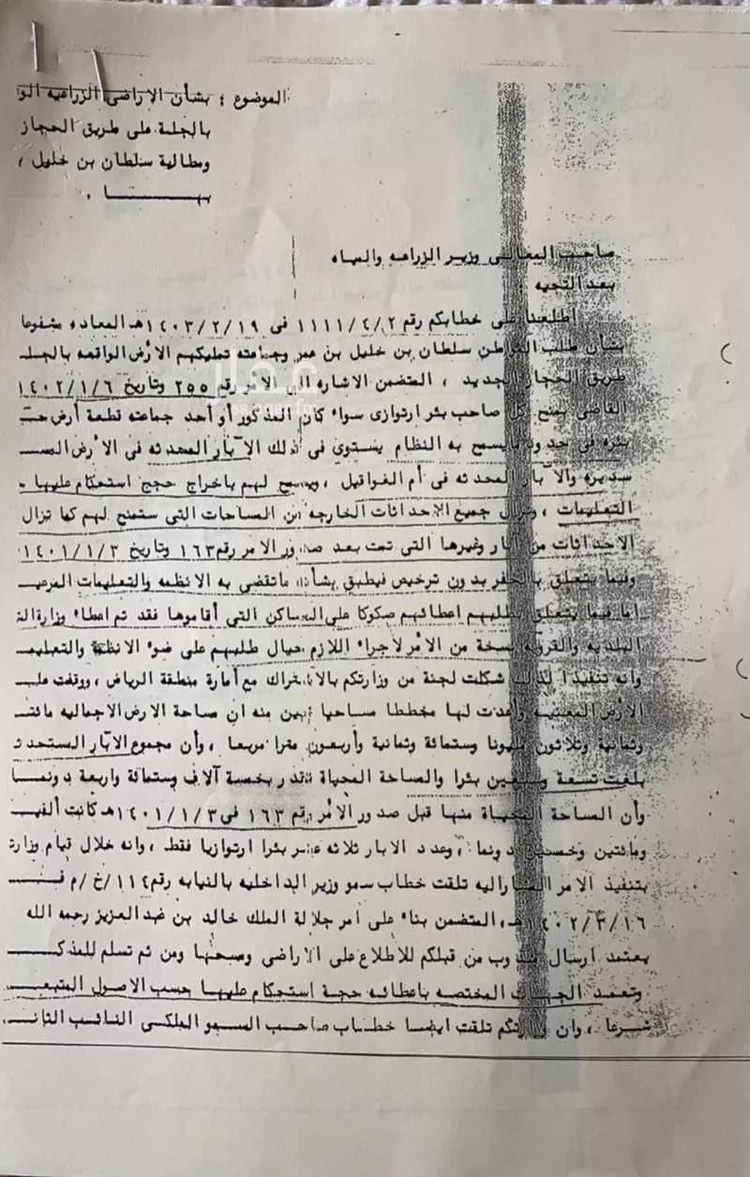 الموضوع : بشأن الاراضي الزراعيه الو
بالجلة على طريق الحجاز
ومطالبة سلطان بن خليل ،
بهـــا .
صاحب المعالي وزير الزراعه والمياه
بعد التحيه :
اطلعنا على خطابكم رقم ١١١١/٤/٢ في ١٤٠٣/٢/١٩هـ المعاده مشفوعا
بشأن طلب المواطن سلطان بن خليل بن عمر وجماعته تمليكهم الأرض الواقعه بالجلـه
طريق الحجاز الجديد ، المتضمن الاشاره الى الامر رقم ٢٥٥ وتاريخ ١٤٠٢/١/٦
القاضي بمنح كل صاحب بئر ارتوازى سواء كان المذكور أو أحد جماعته قطعة أرض حـ
بئره في حدود مايسمح به النظام يستوى في ذلك الآبار المحدثه في الأرض المسـ
سديره والآبار المحدثه في أم الغواقيل ، ويسمح لهم باخراج حجج استحكام عليها
التعليمات ، وتزال جميع الاحداثات الخارجه عن المساحات التي ستمنح لهم كما تزال
الاحداثات من آبار وغيرها التي تمت بعد صدور الامر رقم ١٦٣ وتاريخ ١٤٠١/١/٣
وفيما يتعلق بالحفر بدون ترخيص فيطبق بشأنه ماتقضي به الانظمه والتعليمات المرعيـ
اما فيما يتعلق بطلبهم اعطائهم صكوكا على المساكن التي أقاموها فقد تم اعطاء وزارة
البلديه والقرويه نسخة من الامر لاجراء اللازم حيال طلبهم على ضوء الانظمة والتعليمـ
وانه تنفيذا لذلك شكلت لجنة من وزارتكم بالاشتراك مع أمارة منطقة الرياض ، ووقفت علـ
الأرض المعنيه وأعدت لها مخططا مساحيا تبين منه ان مساحة الارض الاجماليه مائتـ
وثمانية وثلاثون مليونا وستمائة وثمانية وأربعون مترا مربعا ، وأن مجموع الآبار المستحدثـ
بلغت تسعة وسبعين بئرا والمساحة المحياة تقدر بخمسة آلاف وستمائة واربعة دونمـا
وأن المساحة المحياة منها قبل صدور الامر رقم ١٦٣ في ١٤٠١/١/٣هـ كانت ألفيـ
ومائتين وخمسين دونما ، وعدد الابار ثلاثه عشر بئرا ارتوازيا فقط ، وانه خلال قيام وزارت
بتنفيذ الامر المشار اليه تلقت خطاب سمو وزير الداخليه بالنيابه رقم ١١٤/خ/م فـ
١٤٠٢/٣/١٦هـ، المتضمن بناء على أمر جلالة الملك خالد بن عبدالعزيز رحمه الله
يعتمد ارسال مندوب من قبلكم للاطلاع على الاراضي ومسحها ومن ثم تسلم للمذكـ
وتعمد الجهات المختصه باعطائه حجة استحكام عليها حسب الاصول المتبعـ
شرعا ، وان وزارتكم تلقت ايضا خطاب صاحب السمو الملكي النائب الثانـ